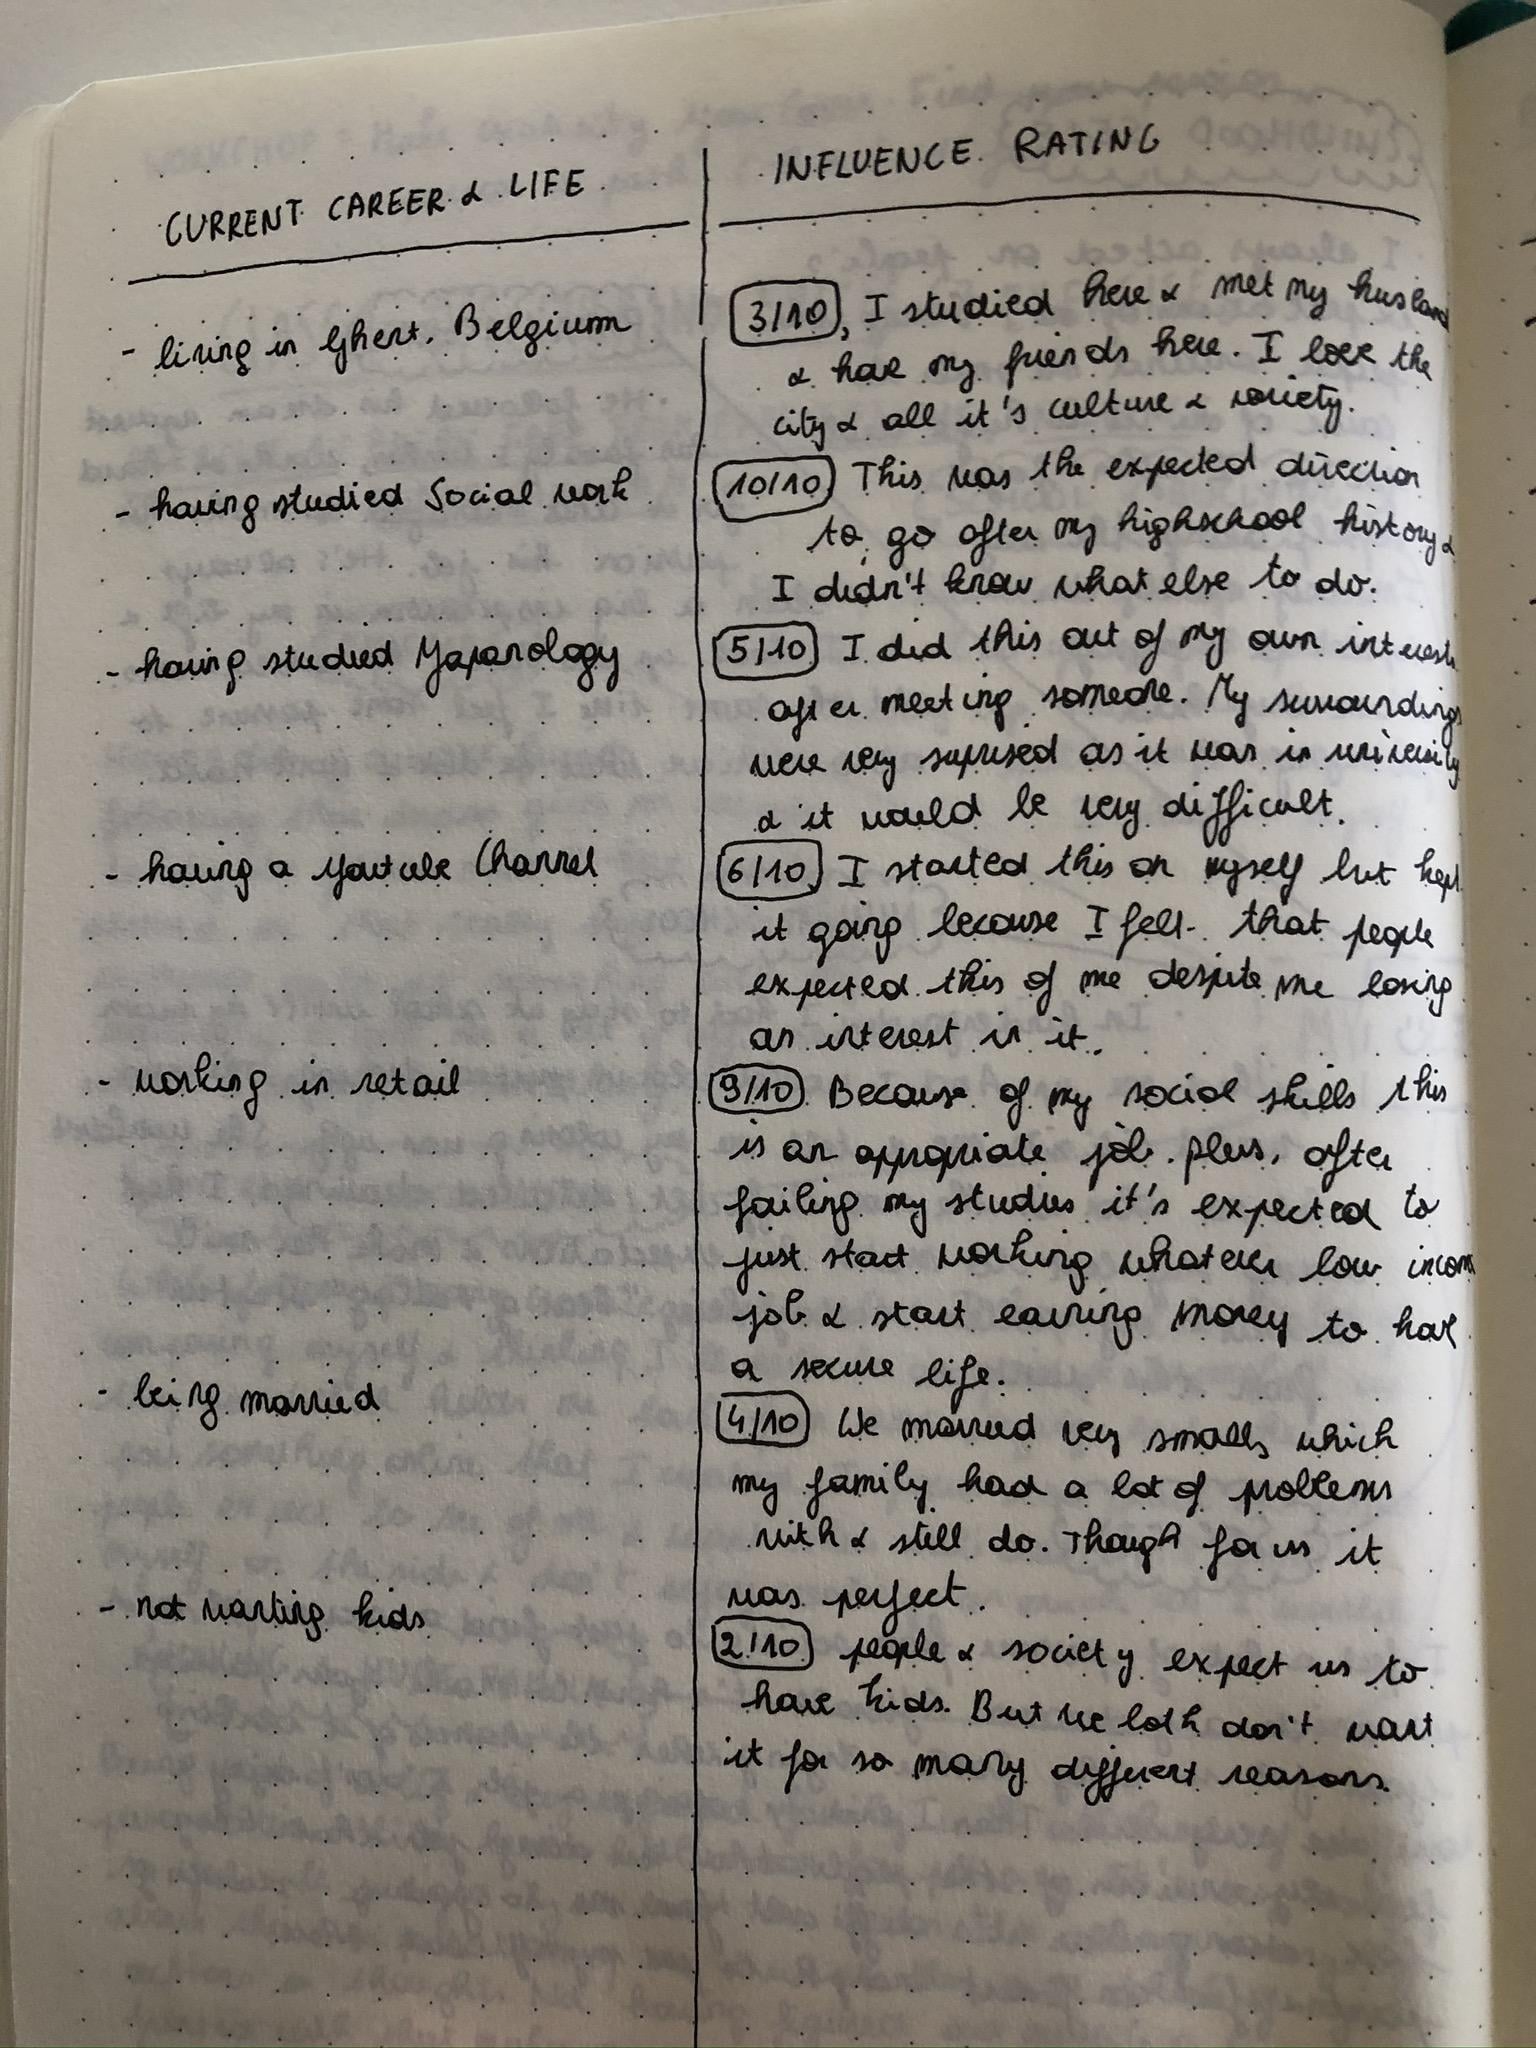 CURRENT CAREER & LIFE
INFLUENCE RATING
- living in Ghent, Belgium
3/10, I studied here & met my husband
& have my friends here. I love the
city & all it's culture & society.
- having studied Social work
10/10 This was the expected direction
to go after my highschool history &
I didn't know what else to do.
- having studied Yapanology
5/10 I did this out of my own interest
after meeting someone. My surroundings
were very suprised as it was in university
& it would be very difficult.
- having a Youtube Channel
6/10 I started this on myself but kept
it going because I felt that people
expected this of me despite me losing
an interest in it.
- working in retail
9/10 Because of my social skills this
is an appropriate job. plus, after
failing my studies it's expected to
just start working whatever low income
job & start earning money to have
a secure life.
- being married
4/10 We married very small, which
my family had a lot of problems
with & still do. Though for us it
was perfect.
- not wanting kids
2/10 people & society expect us to
have kids. But we both don't want
it for so many different reasons.